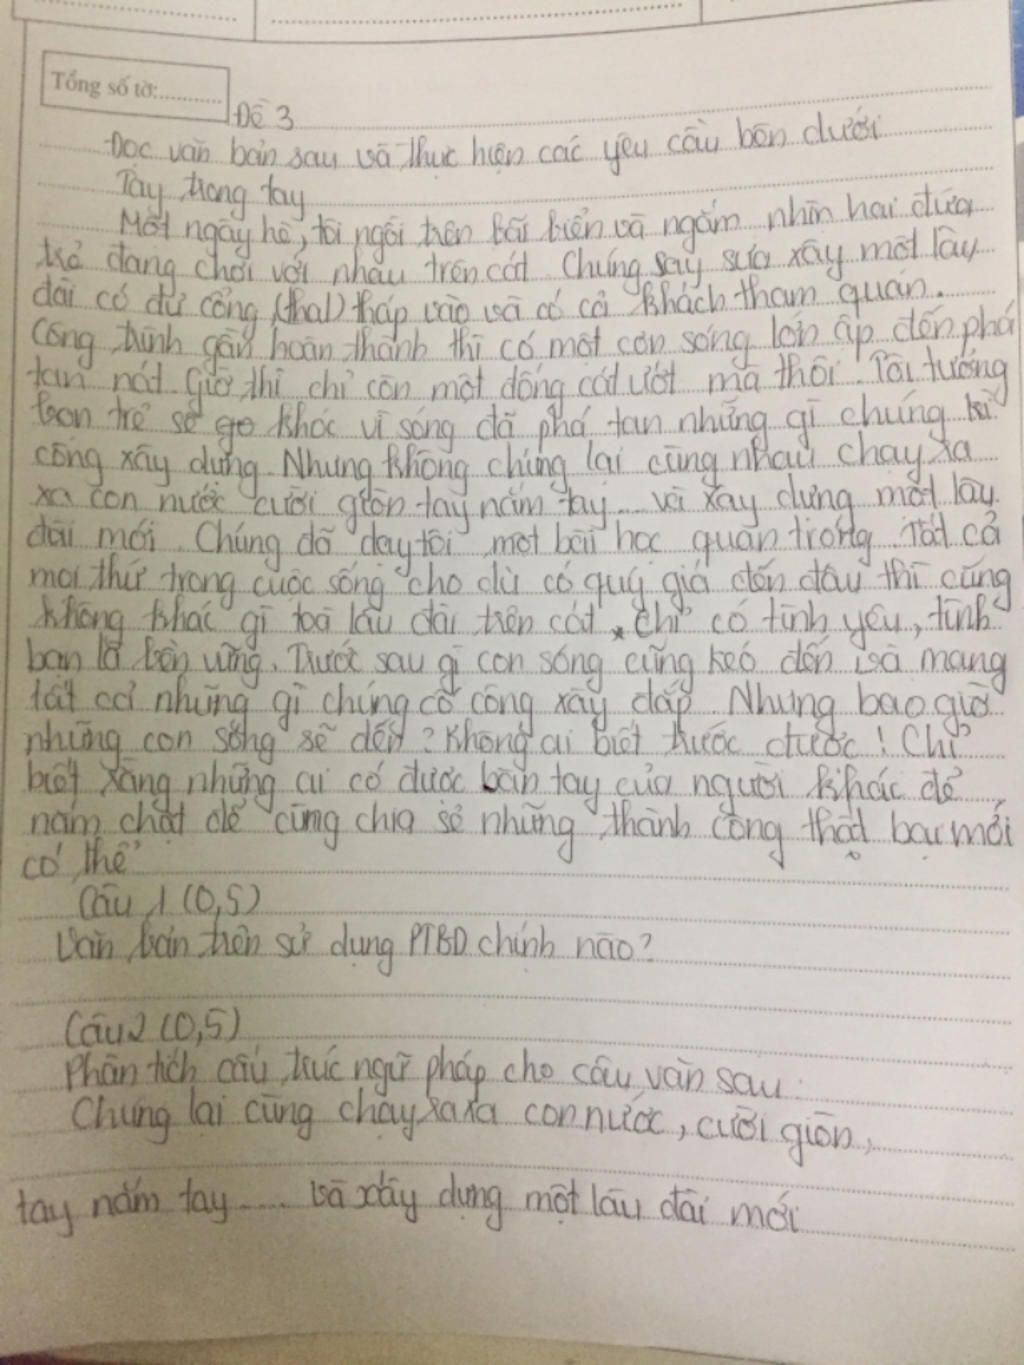 Tổng số tờ:............
Đề 3
Đọc văn bản sau và thực hiện các yêu cầu bên dưới
Tay trong tay
Một ngày hè, tôi ngồi trên bãi biển và ngắm nhìn hai đứa
trẻ đang chơi với nhau trên cát. Chúng say sưa xây một lâu
đài có đủ cổng (thal) tháp vào và có cả khách tham quan.
Công trình gần hoàn thành thì có một cơn sóng lớn ập đến phá
tan nát. Giờ thì chỉ còn một đống cát ướt mà thôi. Tôi tưởng
bọn trẻ sẽ khóc vì sóng đã phá tan những gì chúng kì
công xây dựng. Nhưng không chúng lại cùng nhau chạy xa
xa con nước cười giòn tay nắm tay.... và xây dựng một lâu
đài mới. Chúng đã dạy tôi một bài học quan trọng. Tất cả
mọi thứ trong cuộc sống cho dù có quý giá đến đâu thì cũng
không khác gì toà lâu đài trên cát, chỉ có tình yêu, tình
bạn là bền vững. Trước sau gì con sóng cũng kéo đến và mang
tất cả những gì chúng cố công xây đắp. Nhưng bao giờ
những con sóng sẽ đến? Không ai biết trước được! Chỉ
biết rằng những ai có được bàn tay của người khác để
nắm chặt để cùng chia sẻ những thành công thất bại mới
có thể
Câu 1 (0,5)
Văn bản trên sử dụng PTBD chính nào?
Câu 2 (0,5)
Phân tích cấu trúc ngữ pháp cho câu văn sau:
Chúng lại cùng chạy xa xa con nước, cười giòn,
tay nắm tay.... và xây dựng một lâu đài mới